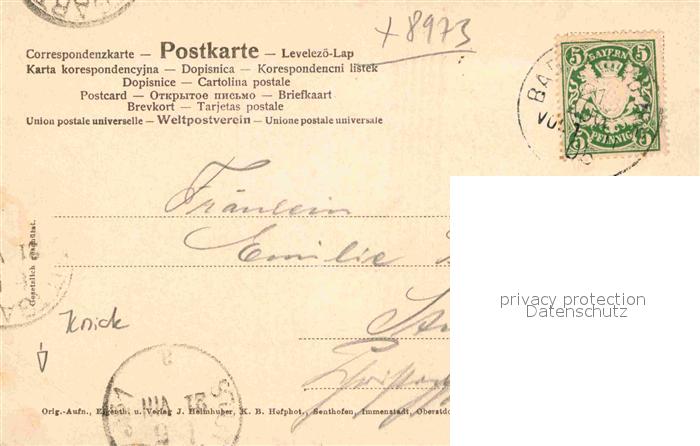 +8973
Correspondenzkarte — Postkarte — Levelező-Lap
Karta korespondencyjna — Dopisnica — Korespondencní listek
Dopisnice — Cartolina postale
Postcard — Открытое письмо — Briefkaart
Brevkort — Tarjetas postale
Union postale universelle — Weltpostverein — Unione postale universale
5 BAYERN 5
5 PFENNIG 5
Fräulein
Emilie
Gesetzlich geschützt.
privacy protection
Datenschutz
Knick
21 VIII
Orig.-Aufn., Eigenth. u. Verlag J. Heimhuber, K. B. Hofphot., Sonthofen, Immenstadt, Oberstdo